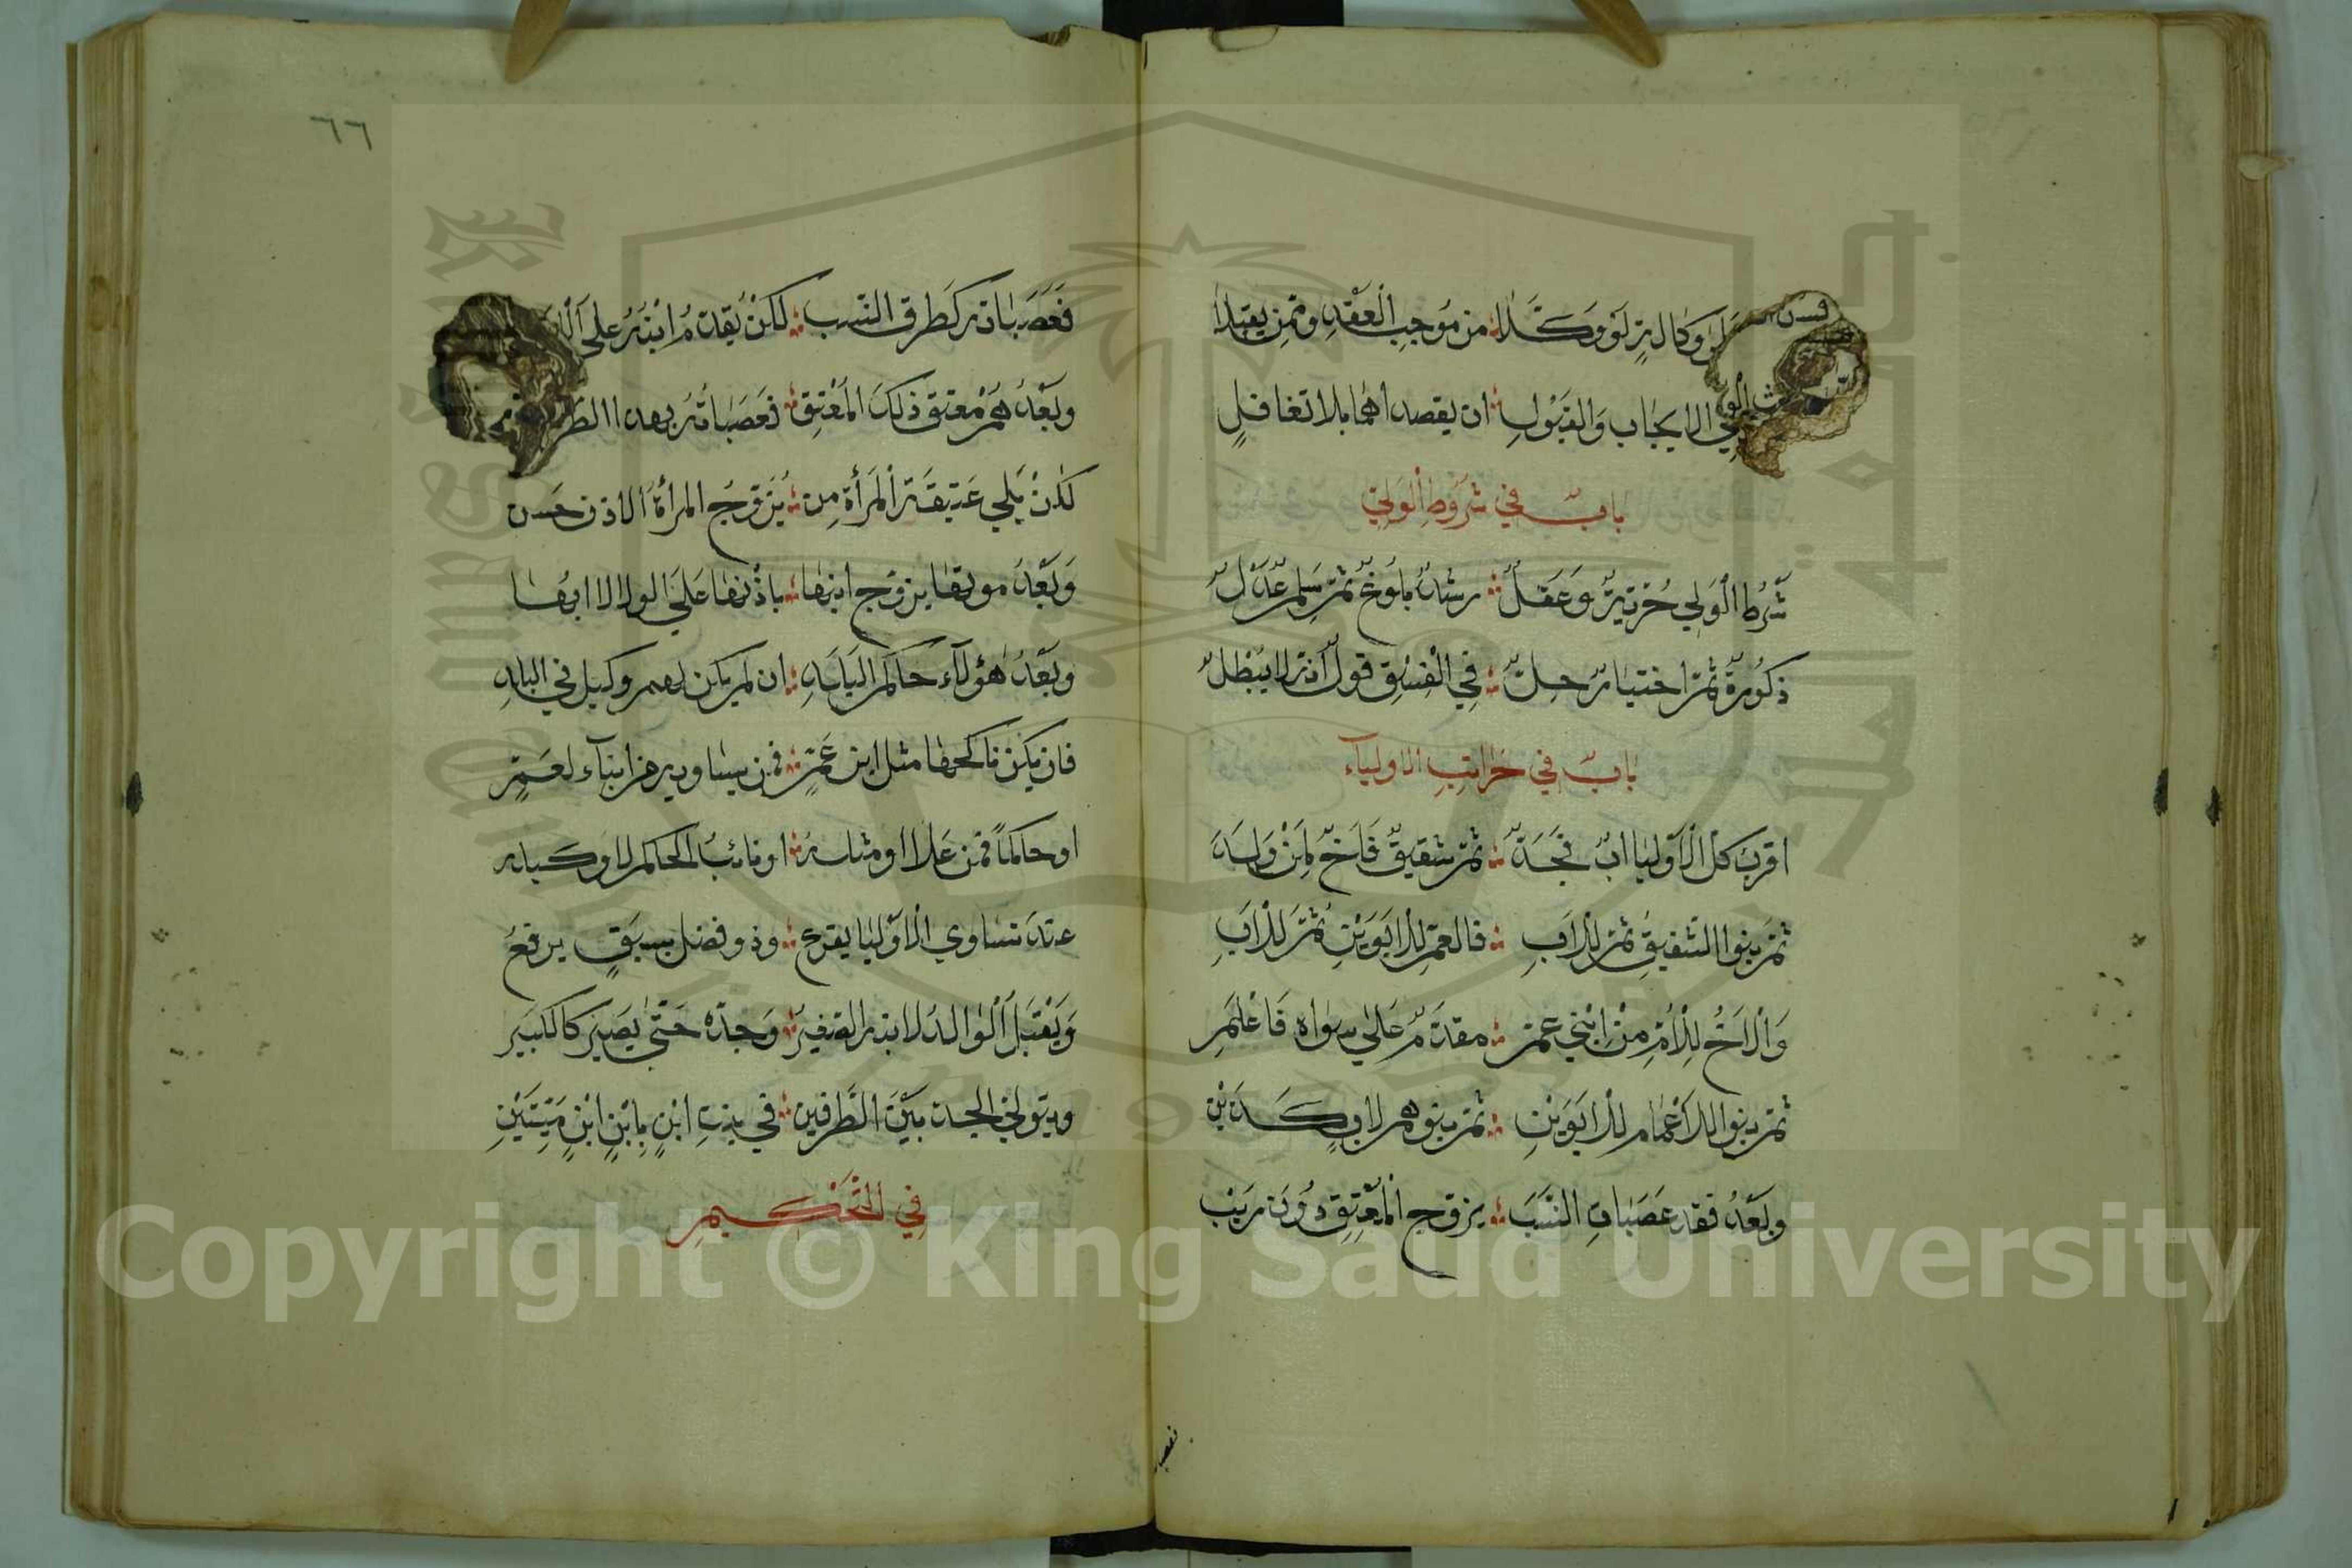 وكالة لو وكلا ؞ من موجب العقد وممن يقبلا
في الايجاب والقبول ؞ ان يقصداهما بلا تغافل
باب في شروط الولي
شرط الولي حرية وعقل ؞ رشد بلوغ ثم سلم عدل
ذكورة ثم اختيار حل ؞ في الفسق قول انه لا يبطل
باب في مراتب الاولياء
اقرب كل الاوليا اب فجد ؞ ثم شقيق فاخ لمن ولد
ثم بنوا الشقيق ثم للاب ؞ فالعم للابوين ثم للاب
والاخ للام من ابني عم ؞ مقدم على سواه فاعلم
ثم بنوا الاعمام للابوين ؞ ثم بنوهم لاب كذين
وبعد فقد عصبات النسب ؞ يزوج المعتق دون ريب
فعصبا
٦٦
فعصباته كطرق النسب ؞ لكن يقدم ابنه على
وبعدهم معتق ذلك المعتق ؞ فعصباته بهذا
لكن يلي عتيقة المرأة من ؞ يزوج المرأة الاذن حسن
وبعد موتها يزوج ابنها ؞ باذنها على الولا لا ابوها
وبعد هؤلاء حاكم البلد ؞ ان لم يكن لهم وكيل في البلد
فان يكن ناكحها مثل ابن عم ؞ فمن يساويه من ابناء لعم
او حاكما فمن علا او مثله ؞ او نائب الحاكم لا وكيله
عند تساوي الاوليا يقرع ؞ وذو فضل بسبق يرفع
ويقبل الوالد لابنه الصغير ؞ وجده حتى يصير كالكبير
ويتولى الجد بين الطرفين ؞ في بنت ابن بابن ابن ميتين
في التحكيم
Copyright © King Saud University